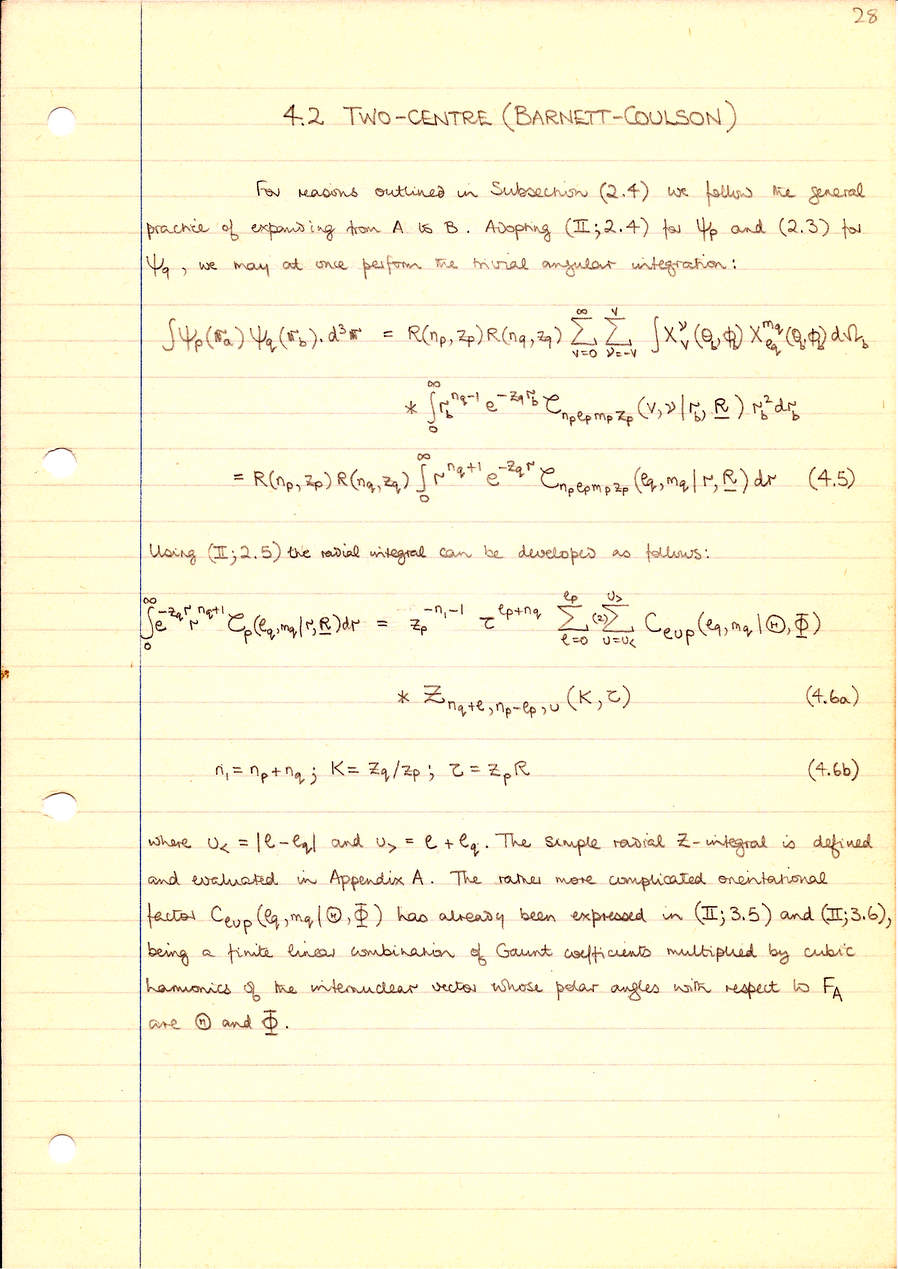 28
4.2 TWO-CENTRE (BARNETT-COULSON)
For reasons outlined in Subsection (2.4) we follow the general
practice of expanding from A to B. Adopting (II;2.4) for ψₚ and (2.3) for
ψ_q, we may at once perform the trivial angular integration:
∫ψₚ(r_a) ψ_q(r_b).d³r = R(nₚ,zₚ)R(n_q,z_q) ∑_{v=0}^{∞} ∑_{ν=-v}^{v} ∫X_v^ν(θ_b,ϕ_b) X_{l_q}^{m_q}(θ_b,ϕ_b) dΩ_b
* ∫_0^∞ r_b^{n_q-1} e^{-z_q r_b} ζ_{nₚlₚmₚzₚ}(v,ν|r_b,R) r_b² dr_b
= R(nₚ,zₚ)R(n_q,z_q) ∫_0^∞ r^{n_q+1} e^{-z_q r} ζ_{nₚlₚmₚzₚ}(l_q,m_q|r,R) dr (4.5)
Using (II;2.5) the radial integral can be developed as follows:
∫_0^∞ e^{-z_q r} r^{n_q+1} ζₚ(l_q,m_q|r,R)dr = zₚ^{-n₁-1} τ^{lₚ+n_q} ∑_{l=0}^{lₚ} ⁽²⁾∑_{u=u_<}^{u_>} C_{lup}(l_q,m_q|Θ,Φ)
* Z_{n_q+l,nₚ-lₚ,u}(K,τ) (4.6a)
n₁=nₚ+n_q; K=z_q/zₚ; τ=zₚR (4.6b)
where u_< = |l-l_q| and u_> = l+l_q. The simple radial Z-integral is defined
and evaluated in Appendix A. The rather more complicated orientational
factor C_{lup}(l_q,m_q|Θ,Φ) has already been expressed in (II;3.5) and (II;3.6),
being a finite linear combination of Gaunt coefficients multiplied by cubic
harmonics of the internuclear vector whose polar angles with respect to F_A
are Θ and Φ.